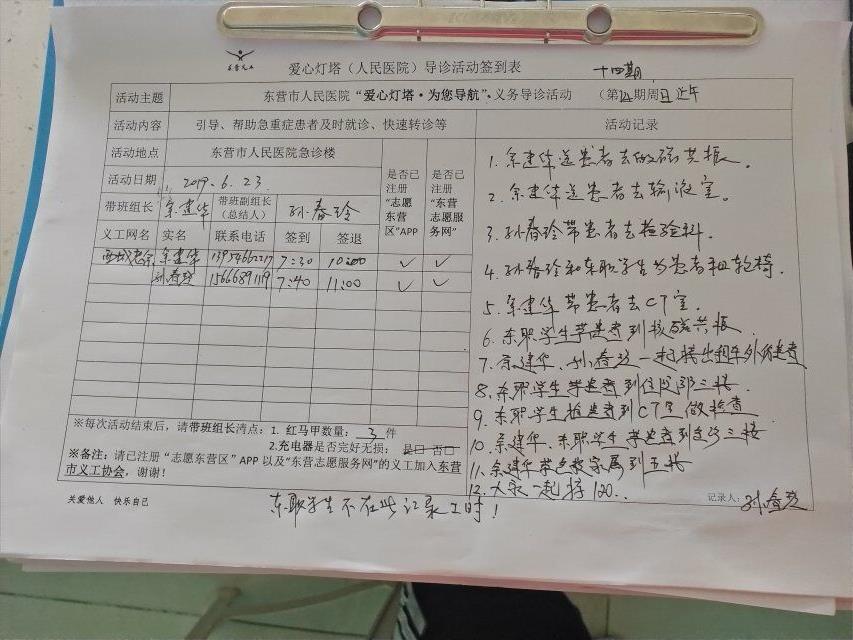 东营义工
爱心灯塔（人民医院）导诊活动签到表 十四期
活动主题 东营市人民医院“爱心灯塔·为您导航”·义务导诊活动 （第14期周日上午
活动内容 引导、帮助急重症患者及时就诊、快速转诊等 活动记录
活动地点 东营市人民医院急诊楼
活动日期 2019.6.23.
是否已注册“志愿东营区”APP
是否已注册“东营志愿服务网”
带班组长 余建华 带班副组长（总结人） 孙春玲
义工网名 实名 联系电话 签到 签退
余建华 7:30 10:00 ✓ ✓
孙春玲 7:40 11:00 ✓ ✓
1. 余建华送患者去做磁共振。
2. 余建华送患者去输液室。
3. 孙春玲带患者去检验科.
4. 孙春玲和东职学生为患者租轮椅.
5. 余建华带患者去CT室.
6. 东职学生带患者到核磁共振
7. 余建华、孙春玲一起接出租车外伤患者
8. 东职学生带患者到住院部三楼
9. 东职学生推患者到CT室做检查
10. 余建华、东职学生带患者到三楼
11. 余建华带患者家属到五楼
12. 大家一起接120..
※每次活动结束后，请带班组长清点：1. 红马甲数量： 3 件
2.充电器是否完好无损： 是□ 否□
※备注：请已注册“志愿东营区”APP 以及“东营志愿服务网”的义工加入东营
市义工协会，谢谢！
记录人：孙春玲
关爱他人 快乐自己
东职学生不在此记录工时！